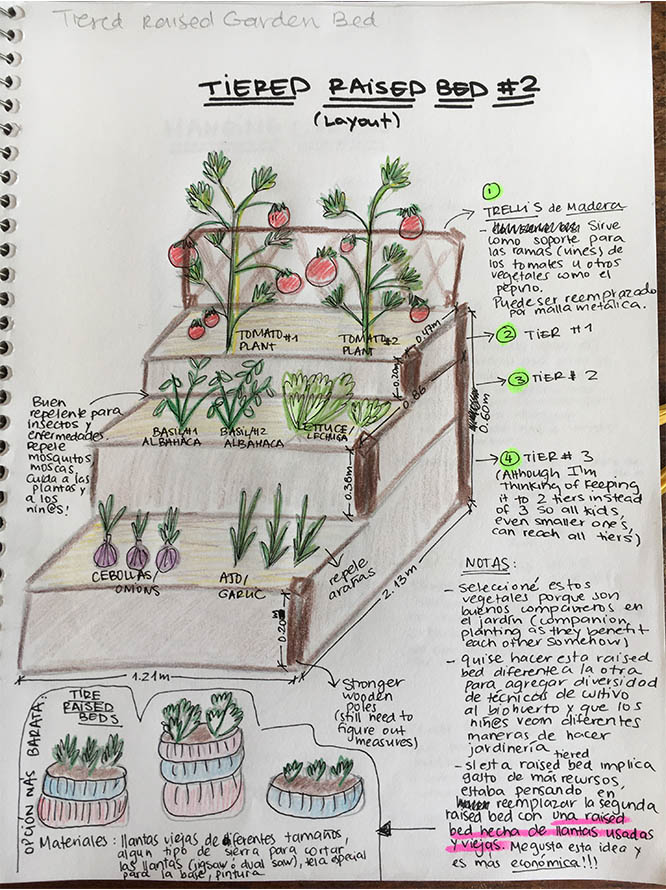 Tiered Raised Garden Bed
TIERED RAISED BED #2
(Layout)
1
TRELLIS de Madera
- Sirve
como soporte para
las ramas (vines) de
los tomates u otros
vegetales como el
pepino.
Puede ser reemplazado
por malla metálica.
TOMATO #1
PLANT
TOMATO #2
PLANT
0.47m
2 TIER #1
0.20m
0.86
3 TIER # 2
0.60m
Buen
repelente para
insectos y
enfermedades.
Repele
mosquitos
moscas,
Cuida a las
plantas y
a los
niñ@s!
BASIL #1
ALBAHACA
BASIL #2
ALBAHACA
LETTUCE/
LECHUGA
0.38m
4 TIER # 3
(Although I'm
thinking of keeping
it to 2 tiers instead
of 3 so all kids,
even smaller ones,
can reach all tiers)
CEBOLLAS/
ONIONS
AJO/
GARLIC
repele
arañas
2.13m
0.20m
1.21m
Stronger
wooden
poles
(still need to
figure out
measures)
NOTAS:
- Seleccioné estos
vegetales porque son
buenos compañeros en
el jardín (companion
planting as they benefit
each other somehow)
- quise hacer esta raised
bed diferente a la otra
para agregar diversidad
de técnicas de cultivo
al biohuerto y que los
niñ@s vean diferentes
maneras de hacer
jardinería
tiered
- si esta raised bed implica
gasto de más recursos,
estaba pensando en
reemplazar la segunda
raised bed con una raised
bed hecha de llantas usadas
y viejas. Me gusta esta idea y
es más económica!!!
OPCIÓN MÁS BARATA:
TIRE
RAISED
BEDS
Materiales: llantas viejas de diferentes tamaños,
algun tipo de sierra para cortar
las llantas (jigsaw ó dual saw), tela especial
para la base, pintura.